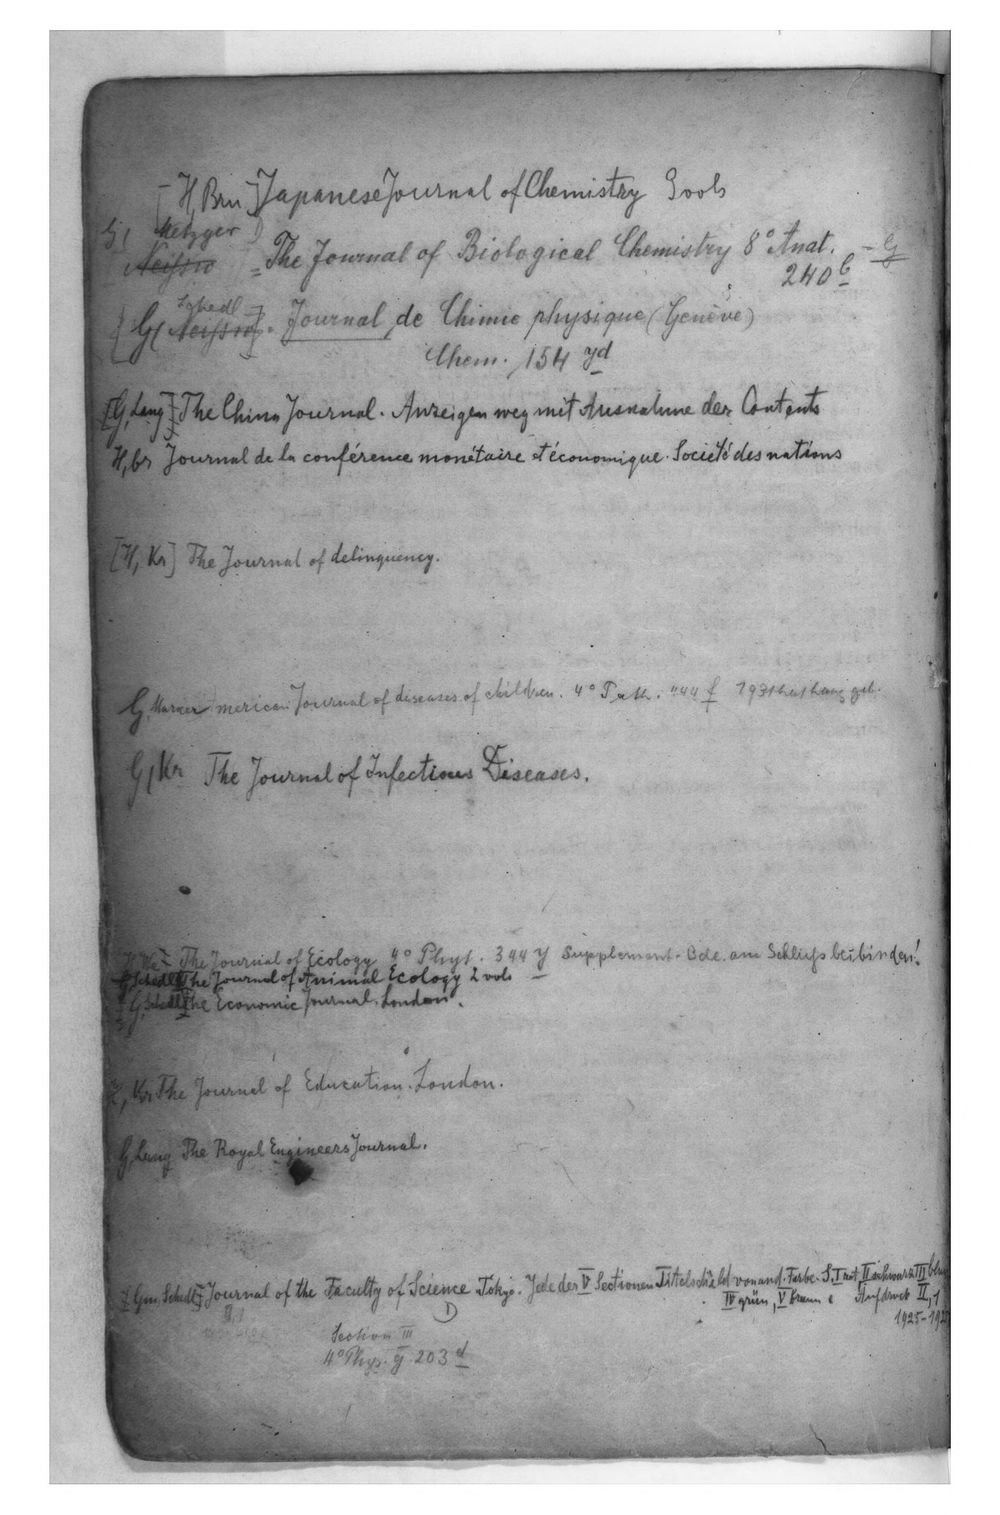 [H, Bru] Japanese Journal of Chemistry 3 vols
G, Metzger
Neisser = The Journal of Biological Chemistry 8° Anat. - G
240 b
Schedl
[G, Neisser] = Journal de Chimie physique (Genève)
Chem. 154 yd
[G, Lang] The China Journal. Anzeigen weg mit Ausnahme der Contents
H, br Journal de la conférence monétaire et économique. Société des nations
[H, Kr] The Journal of delinquency.
G, American Journal of diseases of children. 4° Path. 444 f 1931
G, Kr The Journal of Infectious Diseases.
The Journal of Ecology 4° Phys. 344 y Supplement-Bde. am Schluss beibinden!
G, Schedl The Journal of Animal Ecology 2 vols
G, Schedl The Economic Journal, London.
H, Kr The Journal of Education. London.
G, Lang The Royal Engineers Journal.
[Gm Schedl] Journal of the Faculty of Science Tokyo. Jede der V Sectionen Titelschild von and. Farbe. S. I rot II schwarz III blau
IV grün, V braun Aufdruck II, 1
1925-192
Section III
4° Phys. g. 203 d